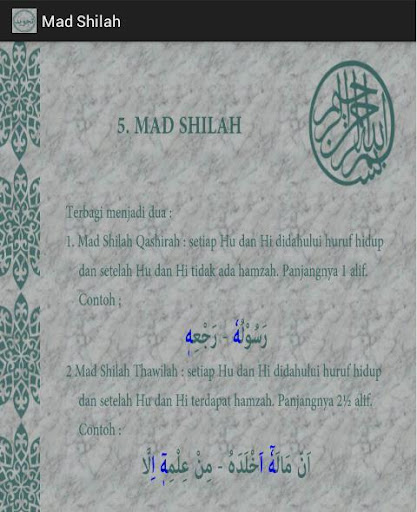 Mad Shilah
5. MAD SHILAH
Terbagi menjadi dua :
1. Mad Shilah Qashirah : setiap Hu dan Hi didahului huruf hidup
dan setelah Hu dan Hi tidak ada hamzah. Panjangnya 1 alif.
Contoh ;
رَسُوْلُهٗ - رَجْعِهٖ
2 Mad Shilah Thawilah : setiap Hu dan Hi didahului huruf hidup
dan setelah Hu dan Hi terdapat hamzah. Panjangnya 2½ alif.
Contoh :
اَنَّ مَالَهٗٓ اَخْلَدَهُ - مِنْ عِلْمِهٖٓ اِلَّا